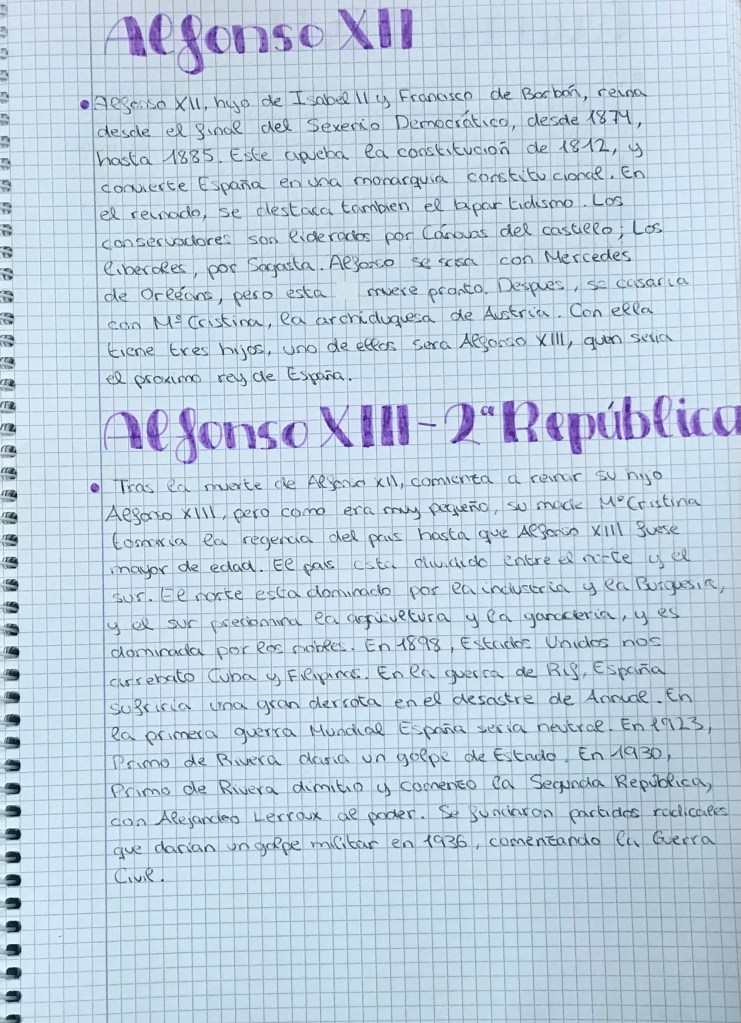 Alfonso XII
• Alfonso XII, hijo de Isabel II y Francisco de Borbón, reina
desde el final del Sexenio Democrático, desde 1874,
hasta 1885. Este aprueba la constitución de 1812, y
convierte España en una monarquia constitucional. En
el reinado, se destaca tambien el bipartidismo. Los
conservadores son liderados por Cánovas del castillo; Los
liberales, por Sagasta. Alfonso se casa con Mercedes
de Orleans, pero esta muere pronto. Despues, se casaria
con Mª Cristina, la archiduquesa de Austria. Con ella
tiene tres hijos, uno de ellos sera Alfonso XIII, quien seria
el proximo rey de España.
Alfonso XIII - 2ª República
• Tras la muerte de Alfonso XII, comienza a reinar su hijo
Alfonso XIII, pero como era muy pequeño, su madre Mª Cristina
tomaria la regencia del pais hasta que Alfonso XIII fuese
mayor de edad. El pais esta dividido entre el norte y el
sur. El norte esta dominado por la industria y la Burguesia,
y el sur predomina la agricultura y la ganaderia, y es
dominada por los nobles. En 1898, Estados Unidos nos
arrebato Cuba y Filipinas. En la guerra de Rif, España
sufriria una gran derrota en el desastre de Annual. En
la primera guerra Mundial España seria neutral. En 1923,
Primo de Rivera daria un golpe de Estado. En 1930,
Primo de Rivera dimitio y comenzo la Segunda República,
con Alejandro Lerroux al poder. Se funciaron partidos radicales
que darian un golpe militar en 1936, comenzando la Guerra
Civil.